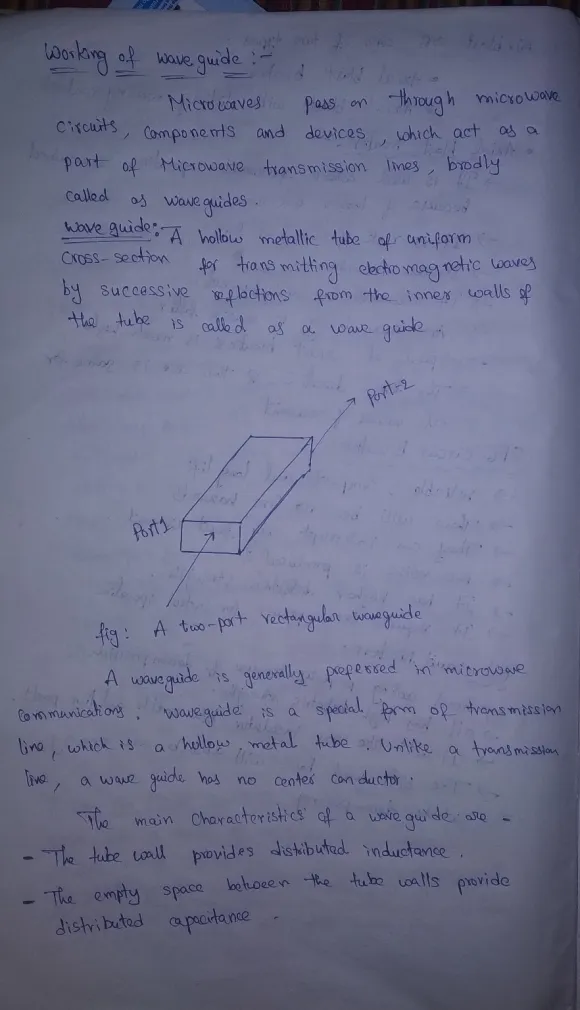 Working of wave guide :-
Microwaves pass on through microwave
circuits, components and devices, which act as a
part of Microwave transmission lines, brodly
called as waveguides.
Wave guide:- A hollow metallic tube of uniform
cross-section for transmitting electromagnetic waves
by successive reflections from the inner walls of
the tube is called as a wave guide.
Port-2
Port1
fig: A two-port rectangular waveguide
A waveguide is generally preferred in microwave
communications. Waveguide is a special form of transmission
line, which is a hollow metal tube. Unlike a transmission
line, a wave guide has no center conductor.
The main characteristics of a wave guide are -
- The tube wall provides distributed inductance.
- The empty space between the tube walls provide
distributed capacitance.